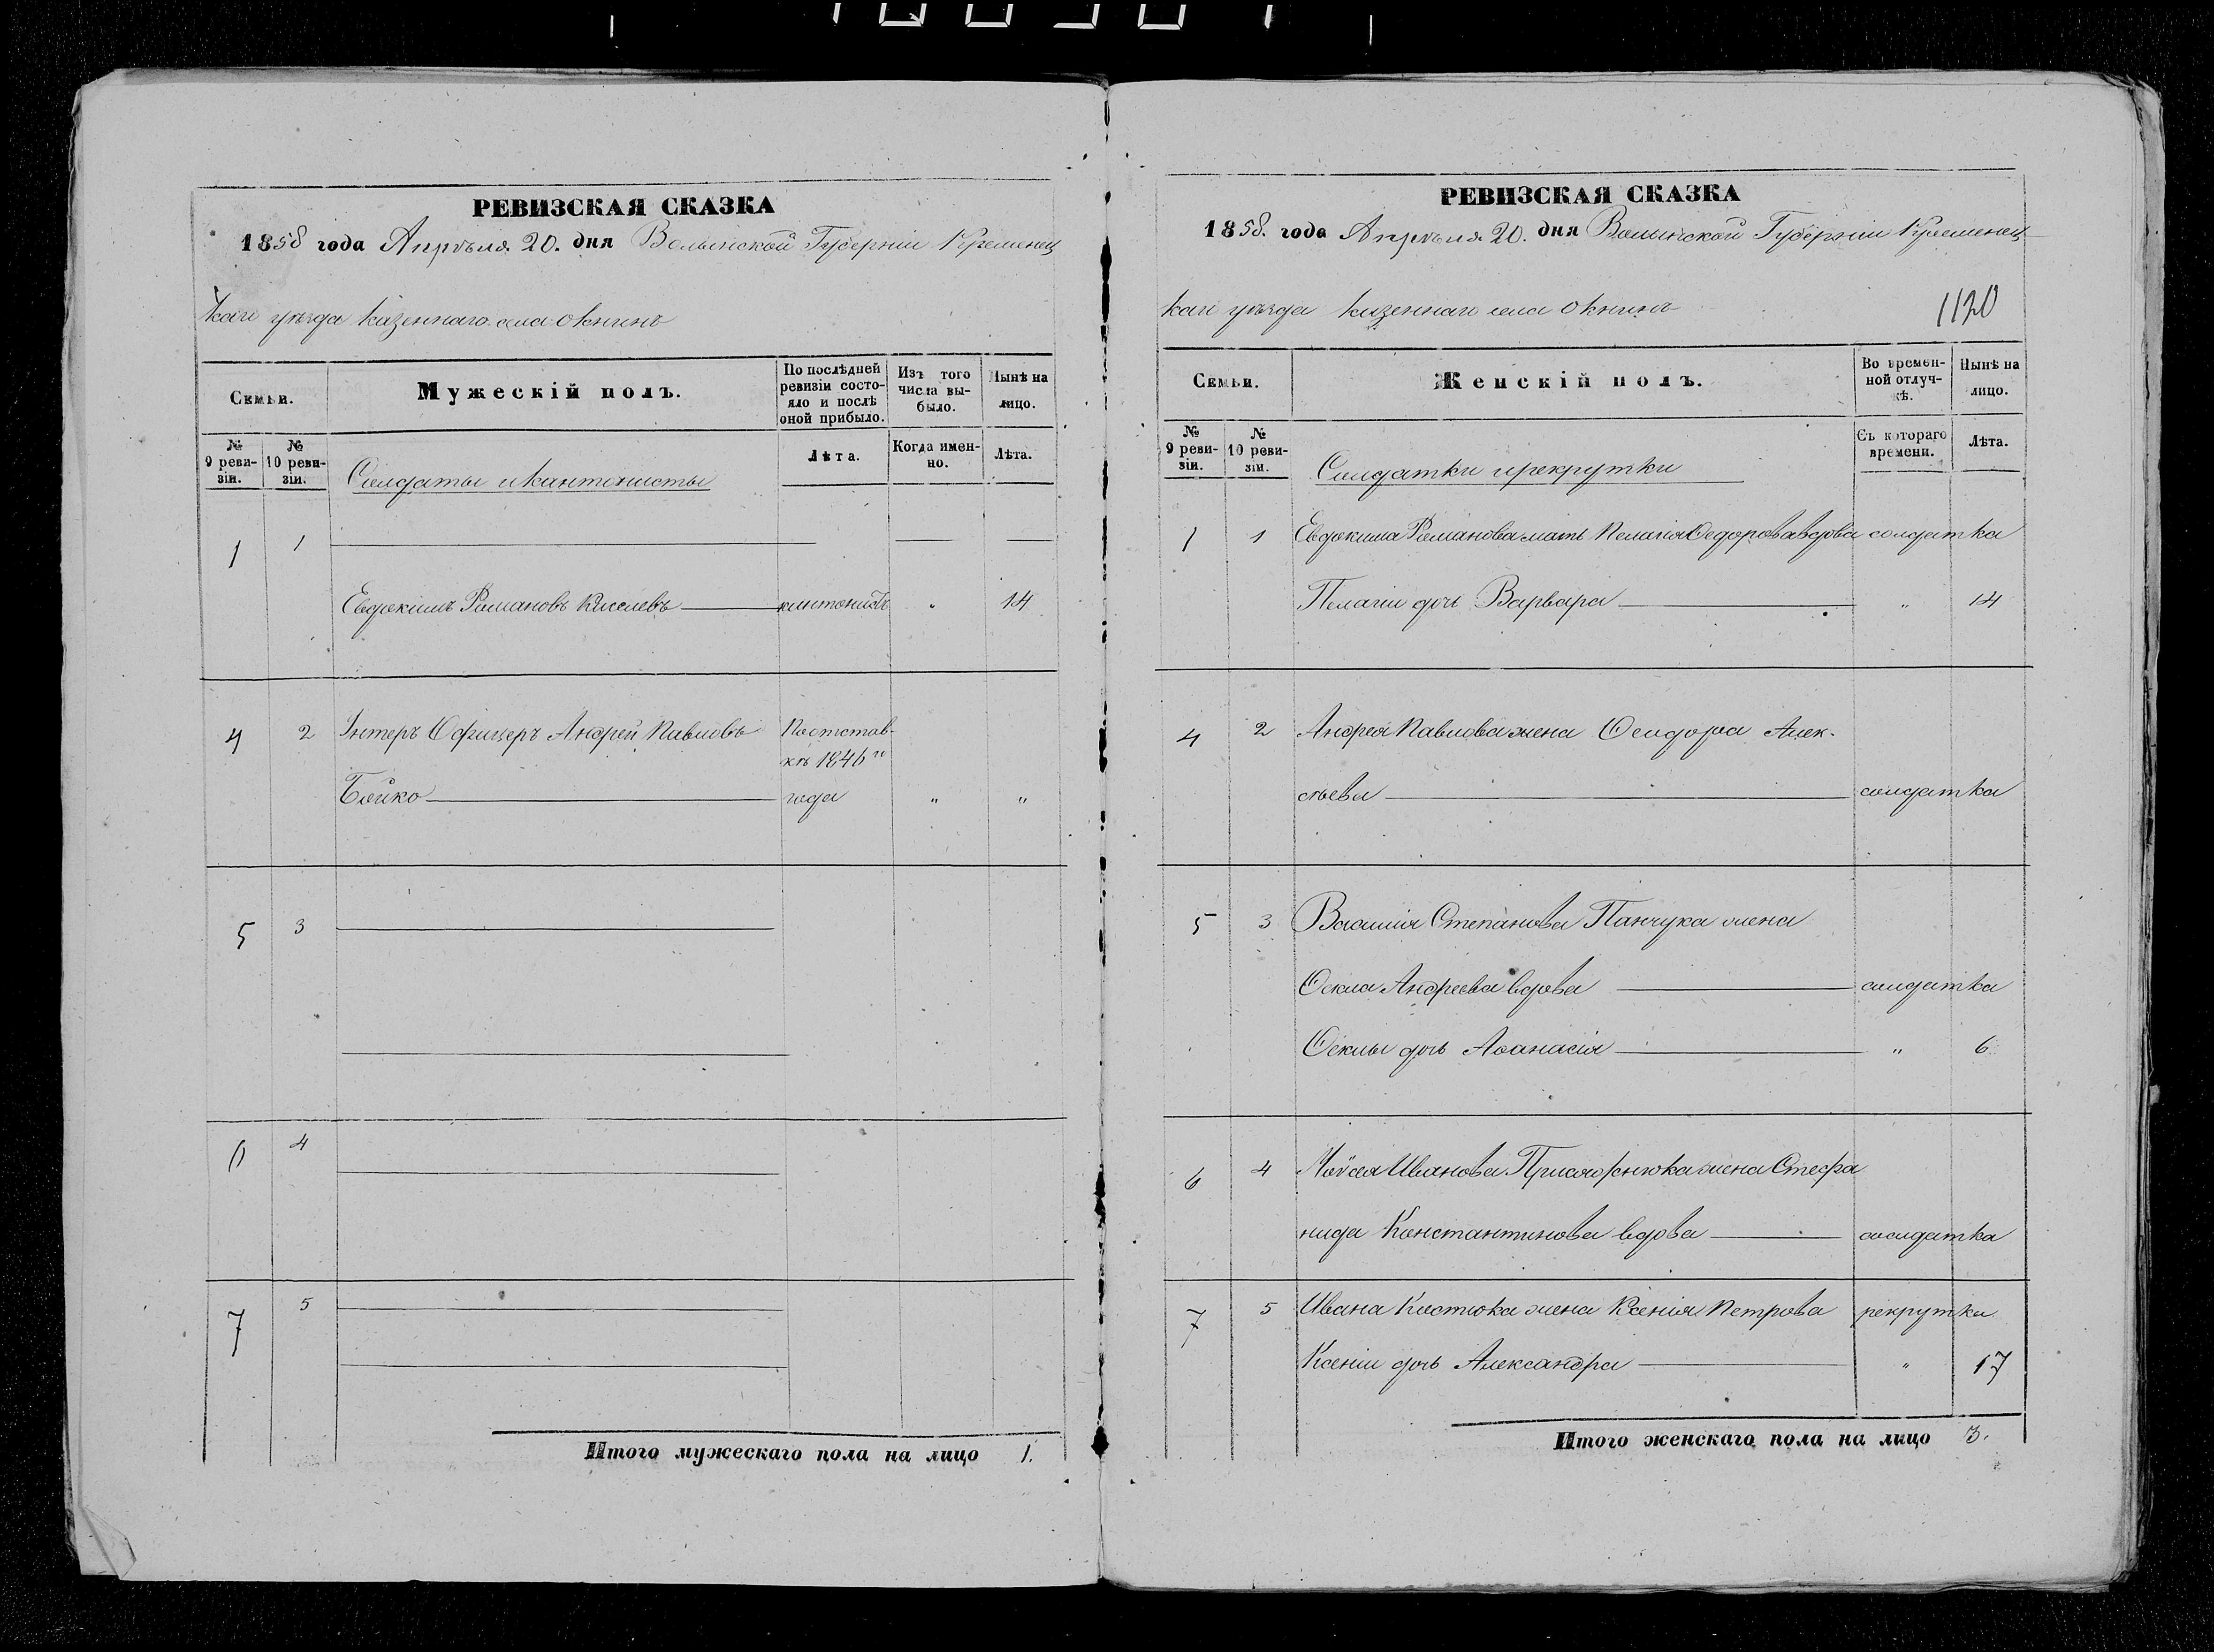 РЕВИЗСКАЯ СКАЗКА
1858 года Апрѣля 20. дня Волынской Губерніи Кременец
каго уѣзда казеннаго села Окнинъ
Семьи.
Мужескій полъ.
По послѣдней ревизіи состояло и послѣ оной прибыло.
Изъ того числа выбыло.
Нынѣ на лицо.
№ 9 ревизіи.
№ 10 ревизіи.
Лѣта.
Когда именно.
Лѣта.
Солдаты и кантонисты
1 1
Евдокимъ Романовъ Киселевъ кантонистъ " 14
4 2 Унтеръ Офицеръ Андрей Павловъ
Бойко
1846 го
года " "
5 3
6 4
7 5
Итого мужескаго пола на лицо 1.
РЕВИЗСКАЯ СКАЗКА
1858. года Апрѣля 20. дня Волынской Губерніи Кременец
каго уѣзда казеннаго села Окнинъ
1120
Семьи.
Женскій полъ.
Во временной отлучкѣ.
Нынѣ на лицо.
№ 9 ревизіи.
№ 10 ревизіи.
Съ котораго времени.
Лѣта.
Солдатки и рекрутки
1 1 Евдокима Романова мать Пелагія Федорова вдова солдатка
Пелагіи дочь Варвара " 14
4 2 Андрея Павлова жена Феодора Алек-
сѣева солдатка
5 3 Василія Степанова Панчука жена
Фекла Андреева вдова солдатка
Феклы дочь Афанасія " 6
6 4 Мойсея Иванова жена Стефа
нида Константинова вдова солдатка
7 5 Ивана Костюка жена Ксенія Петрова рекрутка
Ксеніи дочь Александра " 17
Итого женскаго пола на лицо 3.